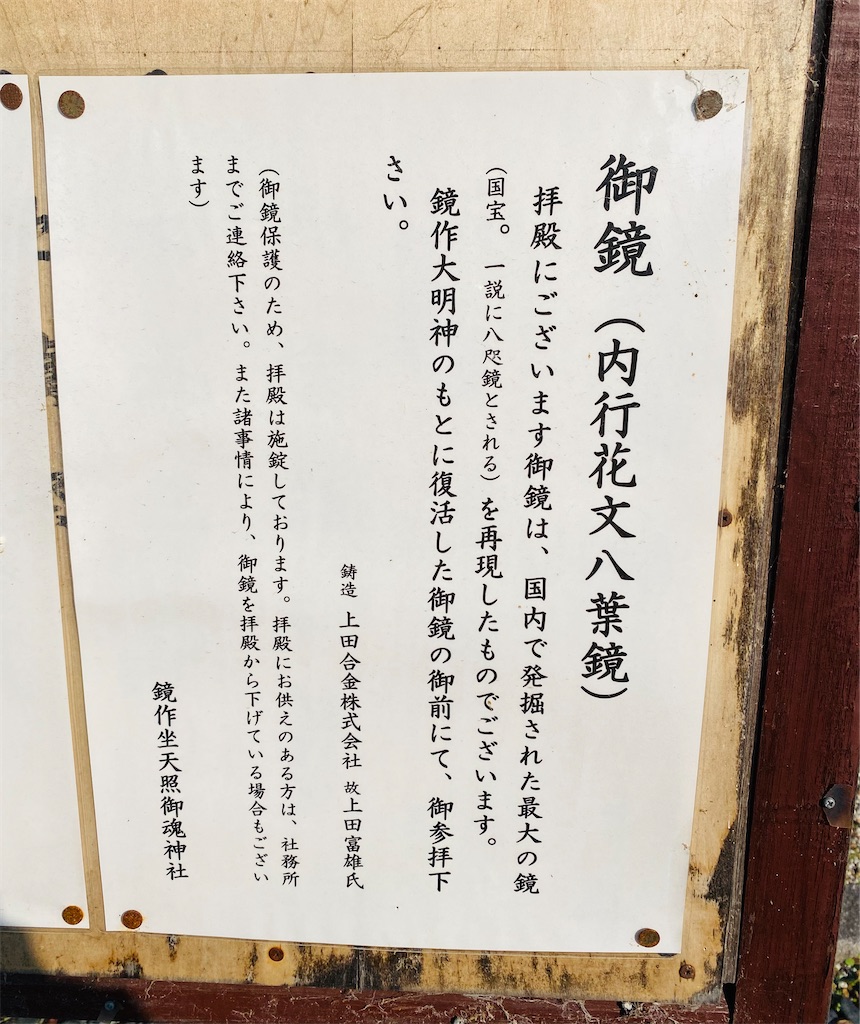 御鏡（内行花文八葉鏡）
拝殿にございます御鏡は、国内で発掘された最大の鏡
（国宝。一説に八咫鏡とされる）を再現したものでございます。
鏡作大明神のもとに復活した御鏡の御前にて、御参拝下
さい。
鋳造 上田合金株式会社 故上田富雄氏
（御鏡保護のため、拝殿は施錠しております。拝殿にお供えのある方は、社務所
までご連絡下さい。また諸事情により、御鏡を拝殿から下げている場合もござい
ます）
鏡作坐天照御魂神社